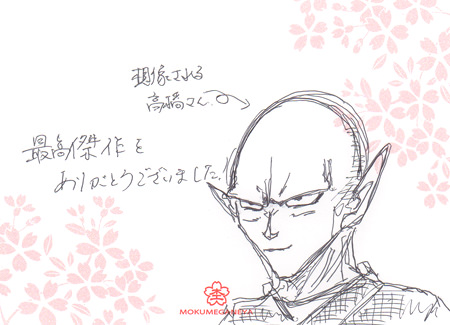 想像される
高橋さん
最高傑作を
ありがとうございました!
MOKUMEGANEYA